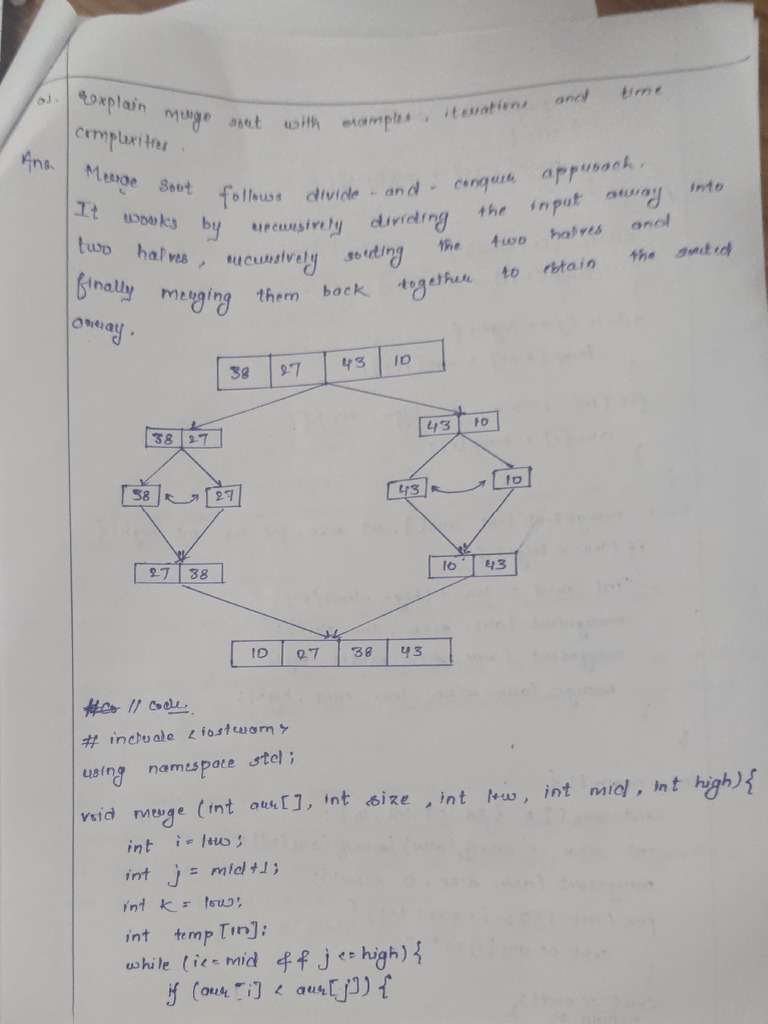 Q1. Explain merge sort with examples, iterations and time
complexities.
Ans. Merge sort follows divide-and-conquer approach.
It works by recursively dividing the input array into
two halves, recursively sorting the two halves and
finally merging them back together to obtain the sorted
array.
38 27 43 10
38 27 43 10
38 27 43 10
27 38 10 43
10 27 38 43
// code.
# include <iostream>
using namespace std;
void merge (int arr[], int size, int low, int mid, int high){
int i = low;
int j = mid+1;
int k = low;
int temp[100];
while (i<=mid && j<=high){
if (arr[i] < arr[j]) {